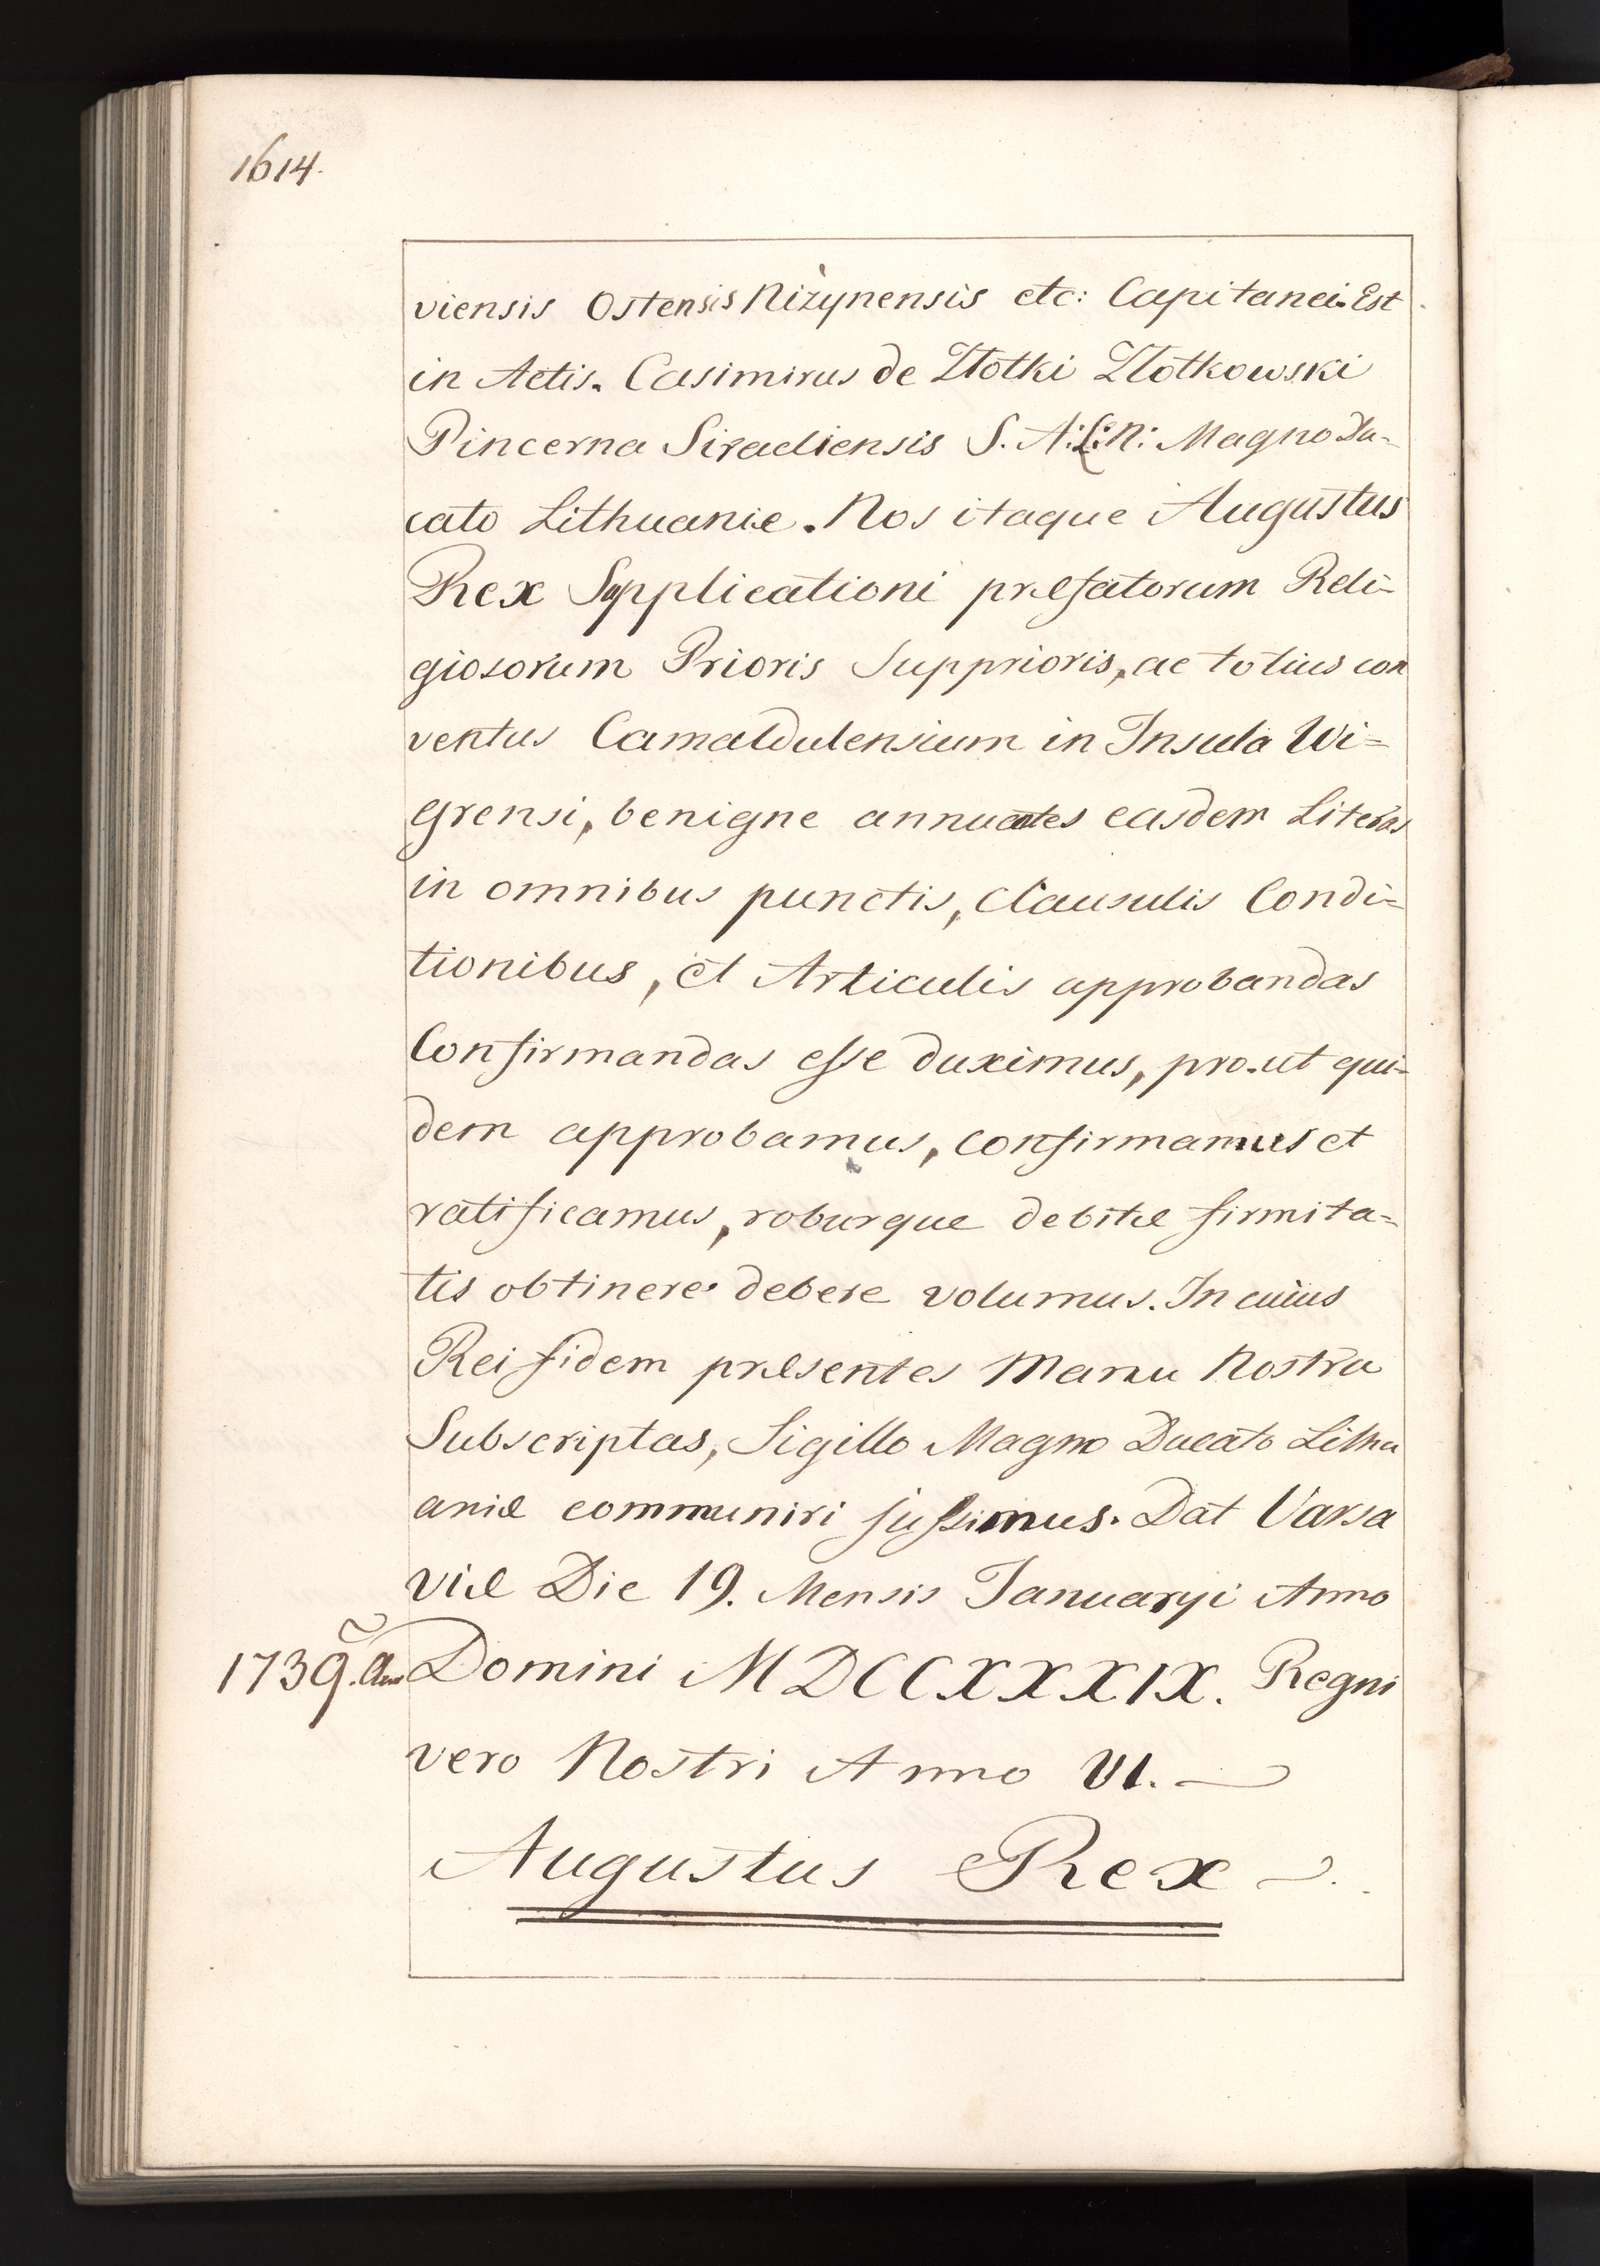 1614.
viensis Ostensis Niżynensis etc: Capitanei. Est
in Actis. Casimirus de Złotki Złotkowski
Pincerna Siradiensis S. A: L: N: Magno Du-
cato Lithuaniæ. Nos itaque Augustus
Rex Supplicationi præfatorum Reli-
giosorum Prioris Supprioris, ac totius con
ventus Camaldulensium in Insula Wi=
grensi, benigne annuentes easdem Literas
in omnibus punctis, Clausulis Condi=
tionibus, et Articulis approbandas
Confirmandas esse duximus, pro-ut qui-
dem approbamus, confirmamus et
ratificamus, roburque debitæ firmita=
tis obtinere debere volumus. In cuius
Rei fidem præsentes Manu Nostra
Subscriptas, Sigillo Magno Ducato Lithu
aniæ communiri jussimus. Dat Varsa
viæ Die 19. Mensis Januaryi Anno
1739.
Domini MDCCXXXIX. Regni
vero Nostri Anno VI.
Augustus Rex